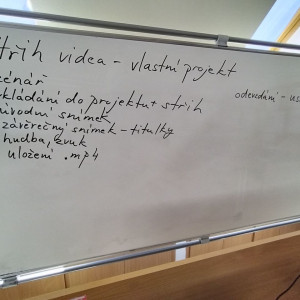 střih videa - vlastní projekt
cénář
kládání do projektu + střih
úvodní snímek
závěrečný snímek - titulky
hudba, zvuk
uložení .mp4
odevzdání -